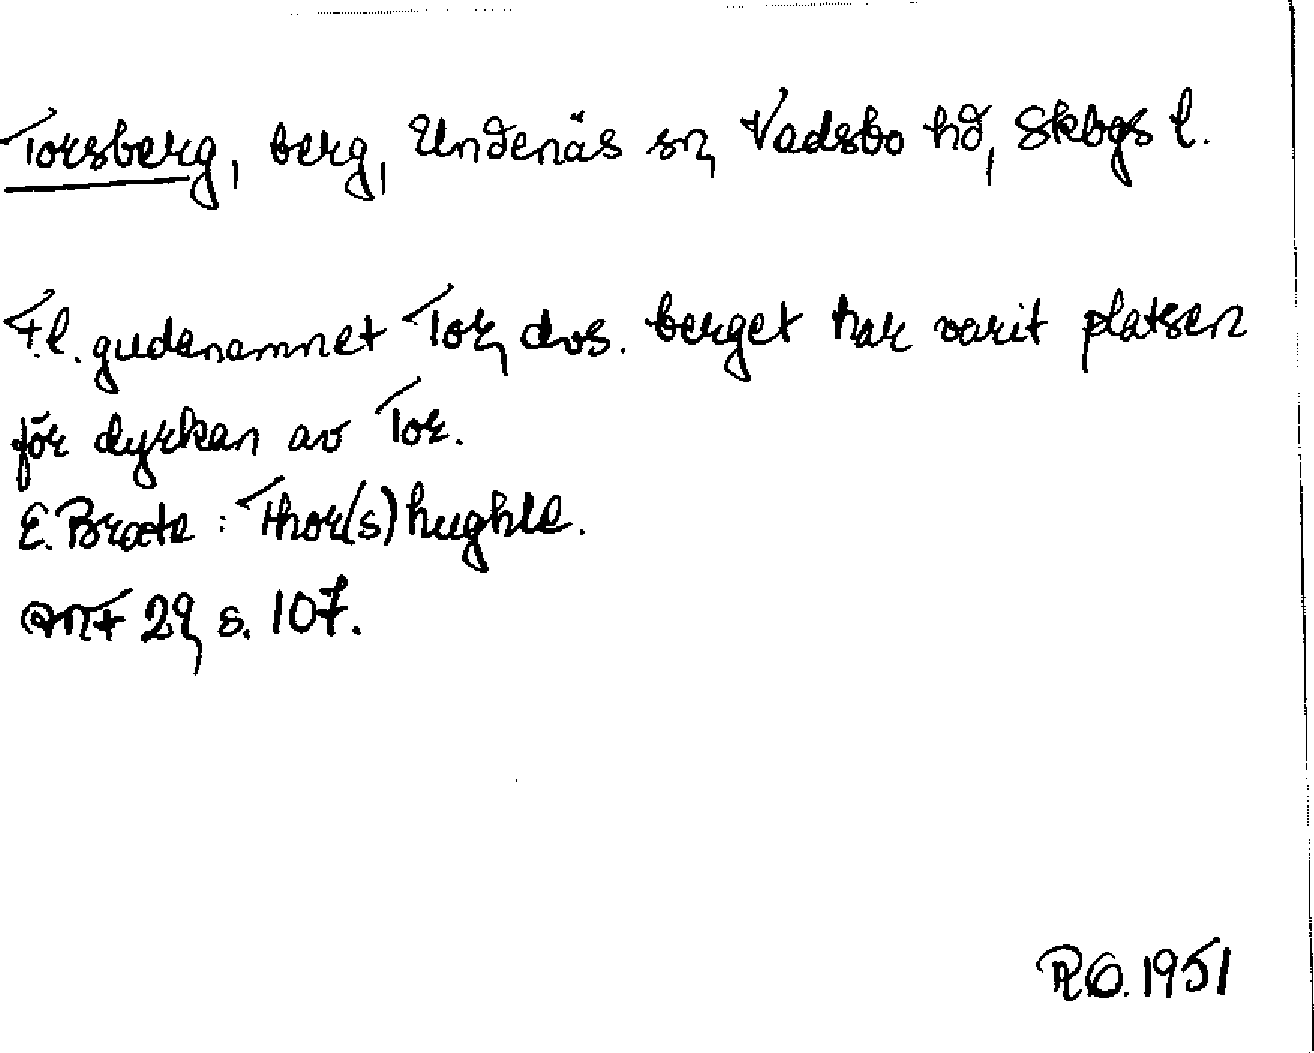 Torsberg, berg, Undenäs sn, Vadsbo hd, Skbgs l.
F.l. gudanamnet Tor, dvs. berget har varit platsen
för dyrkan av Tor.
E. Brate: Thor(s)hughle.
ANF 29, s. 107.
RO. 1951